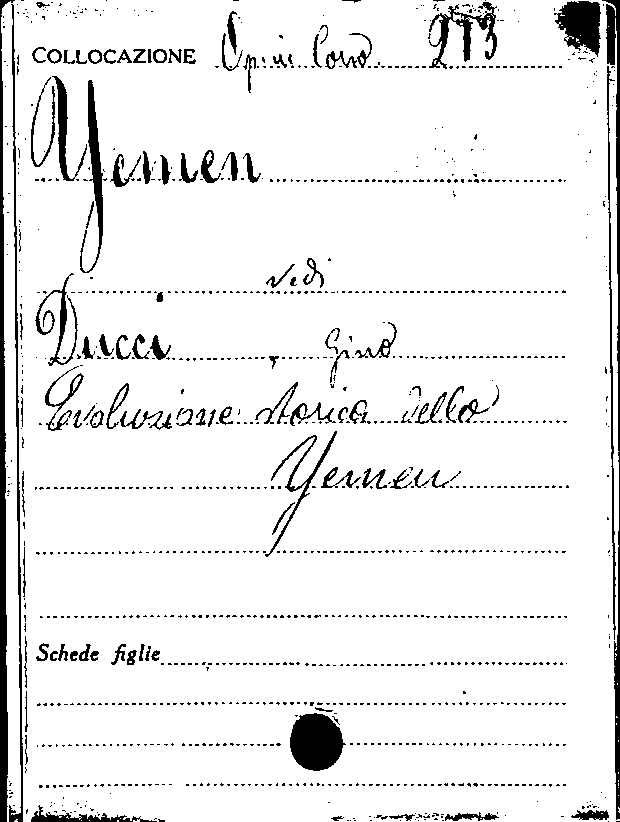 COLLOCAZIONE Opusc. Cons. 213
Yemen
vedi
Ducci, Gino
Evoluzione storica dello
Yemen
Schede figlie